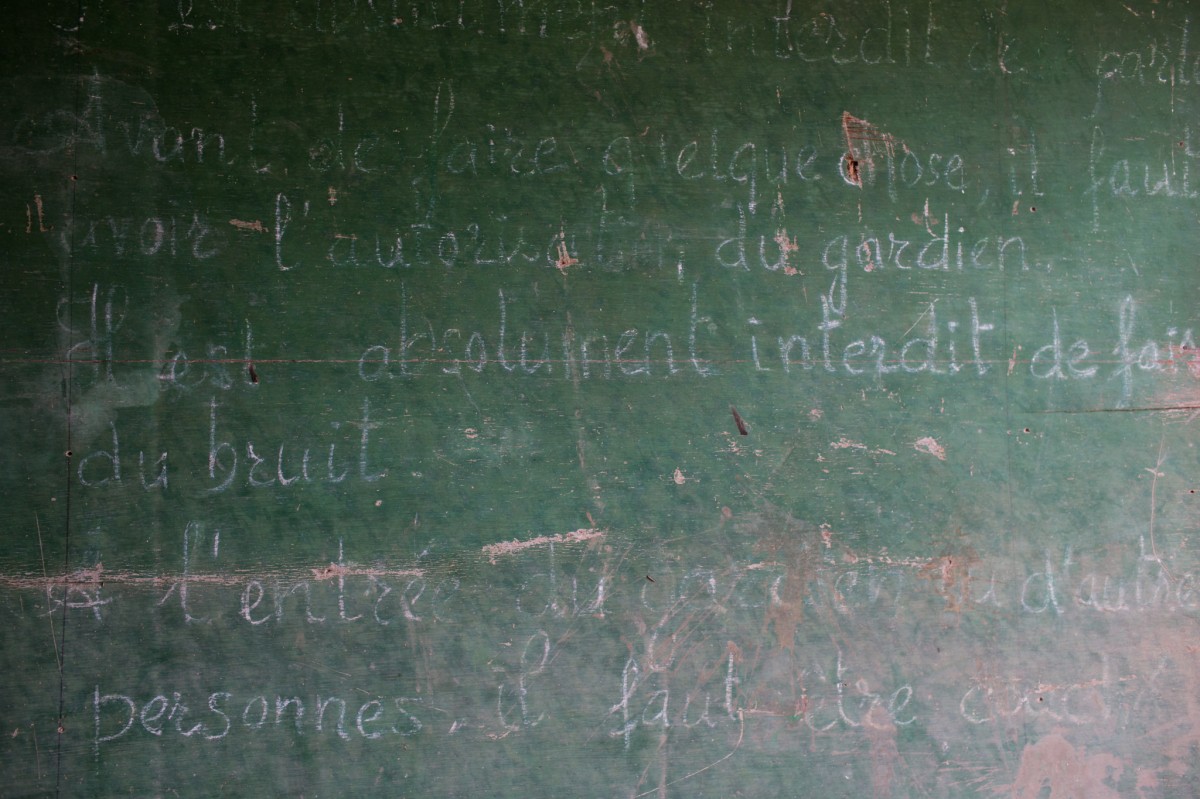 interdit de parle
Avant de faire quelque chose, il faut
avoir l'autorisation du gardien.
Il est absolument interdit de fair
du bruit
A l'entrée du gardien ou d'autre
personnes, il faut être couché